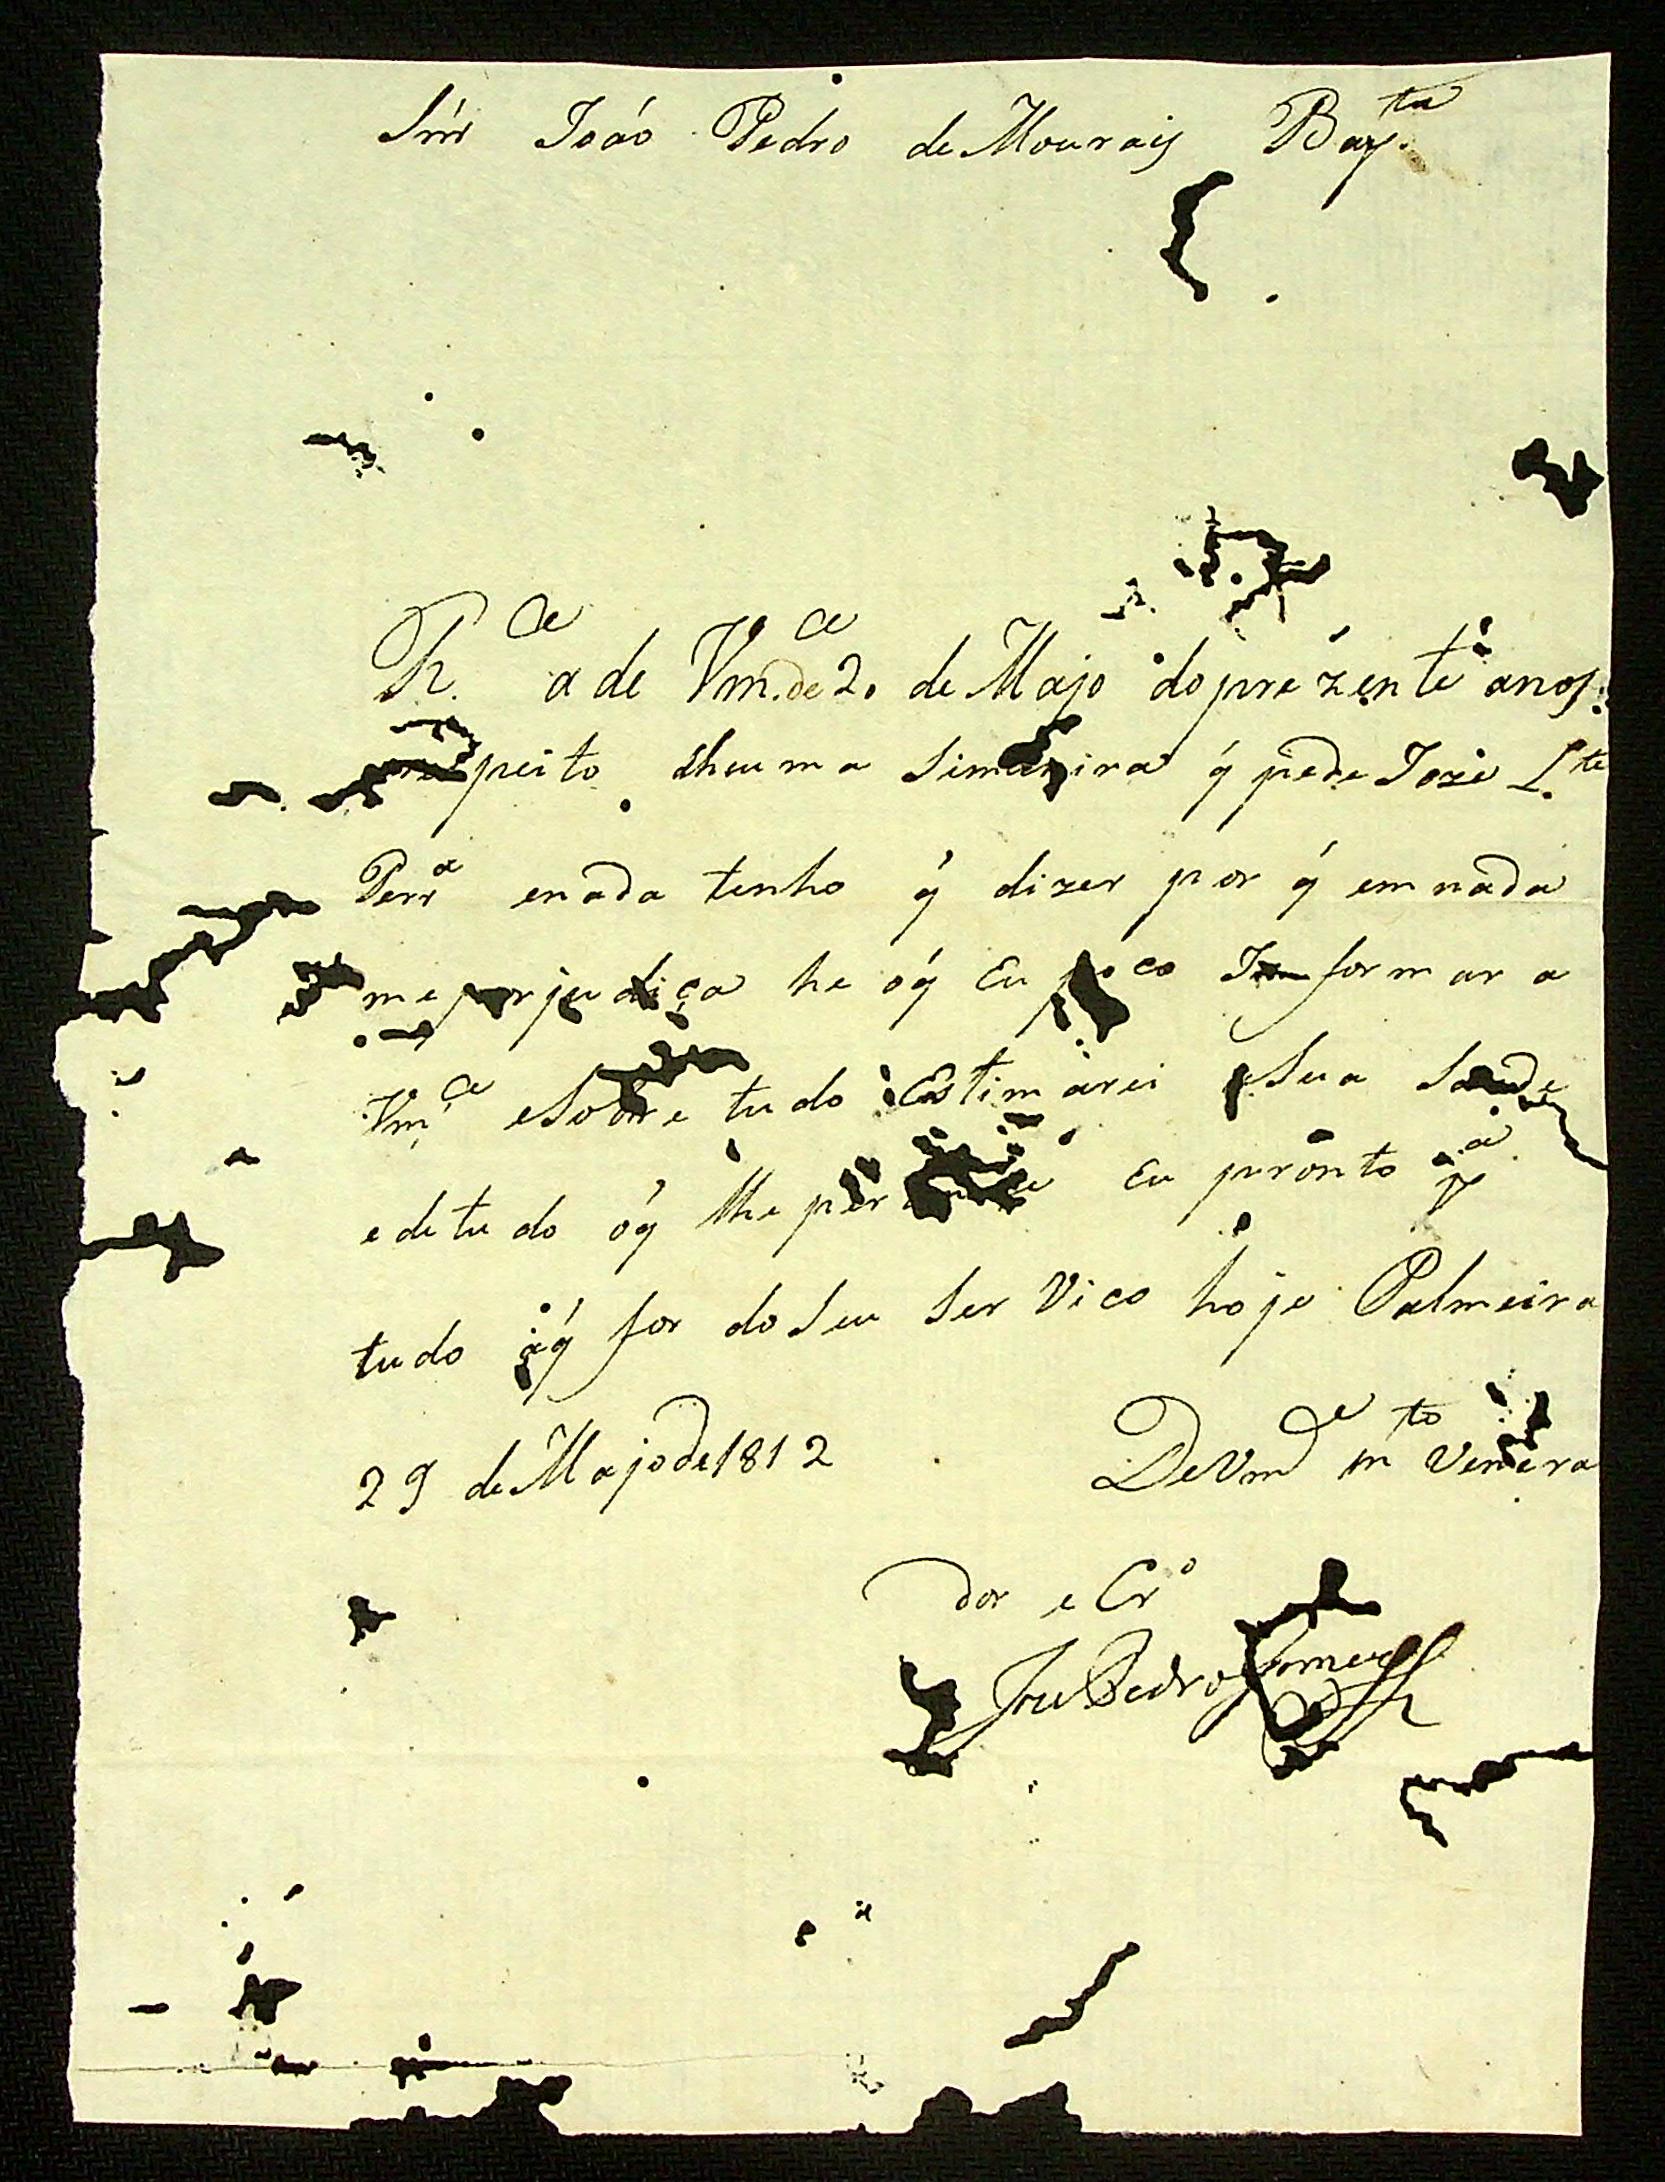 Snr João Pedro de Mourais Bap.ta
R.ce a de Vm.ce de 20 de Majo do prezente ano
respeito dheuma Simaria q́ pede Joze L.te
Perr.a enada tenho q́ dizer por q́ em nada
me perjudica he oq́ Eu poco Informar a
Vm.ce eSobre tudo Estimarei a Sua Saude
e de tudo oq́ lhe Eu pronto p.a
tudo aq́ for do Seu Ser Vico hoje Palmeira
29 de Majo de 1812 De Vm.ce m.to Venera
dor e Cr.o
Joze Pedro Gomes